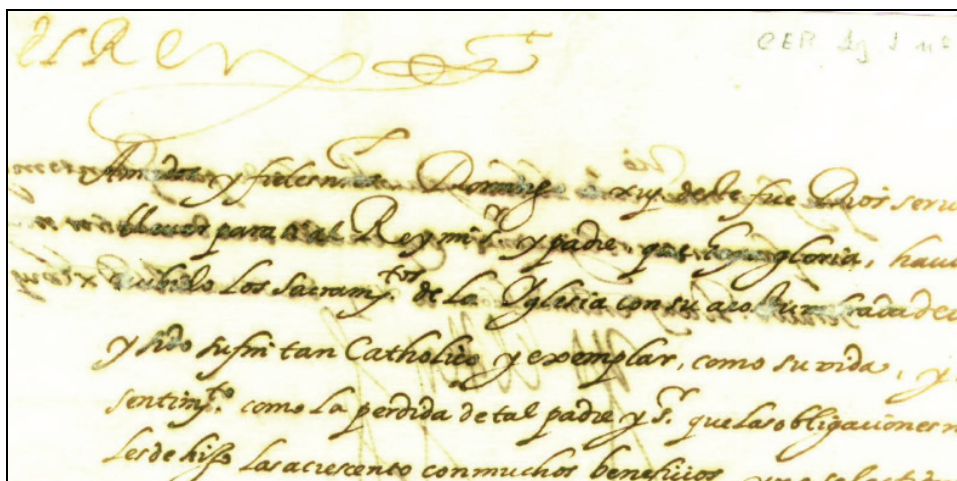 el Rey
CER Lg 1 nº
Amados y fieles nros Domingo a xiij deste fue Dios serui
lleuar para si al Rey mi sr. y padre, que aya gloria, hauien
reciuido los sacramtos de la Yglesia con su acostumbrada de
y sido su fin tan Catholico, y exemplar, como su vida, y
sentimto. como la perdida de tal padre y sr. que las obligaciones
les de hijo las acrescento con muchos beneficios